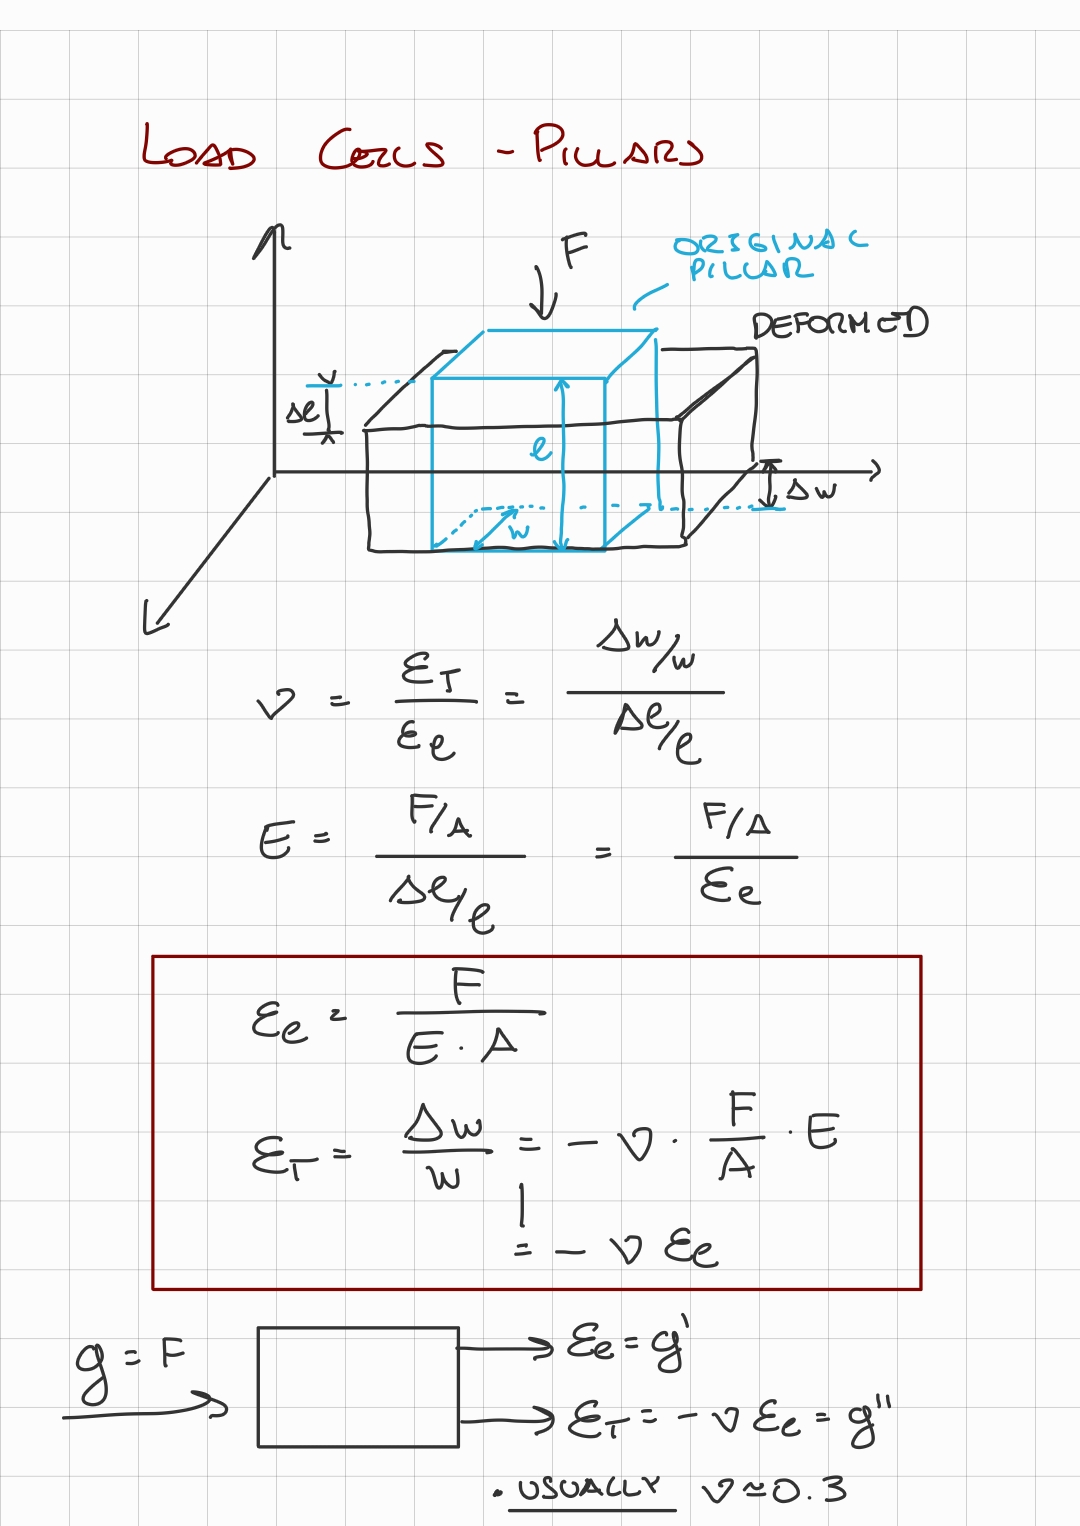 LOAD CELLS - PILLARS
F
ORIGINAL
PILLAR
DEFORMED
Δℓ
ℓ
Δw
w
ν = ε_T / ε_ℓ = (Δw/w) / (Δℓ/ℓ)
E = (F/A) / (Δℓ/ℓ) = (F/A) / ε_ℓ
ε_ℓ = F / (E · A)
ε_T = Δw / w = - ν · F/A · E
= - ν ε_ℓ
g = F
ε_ℓ = g'
ε_T = - ν ε_ℓ = g''
· USUALLY ν ≃ 0.3